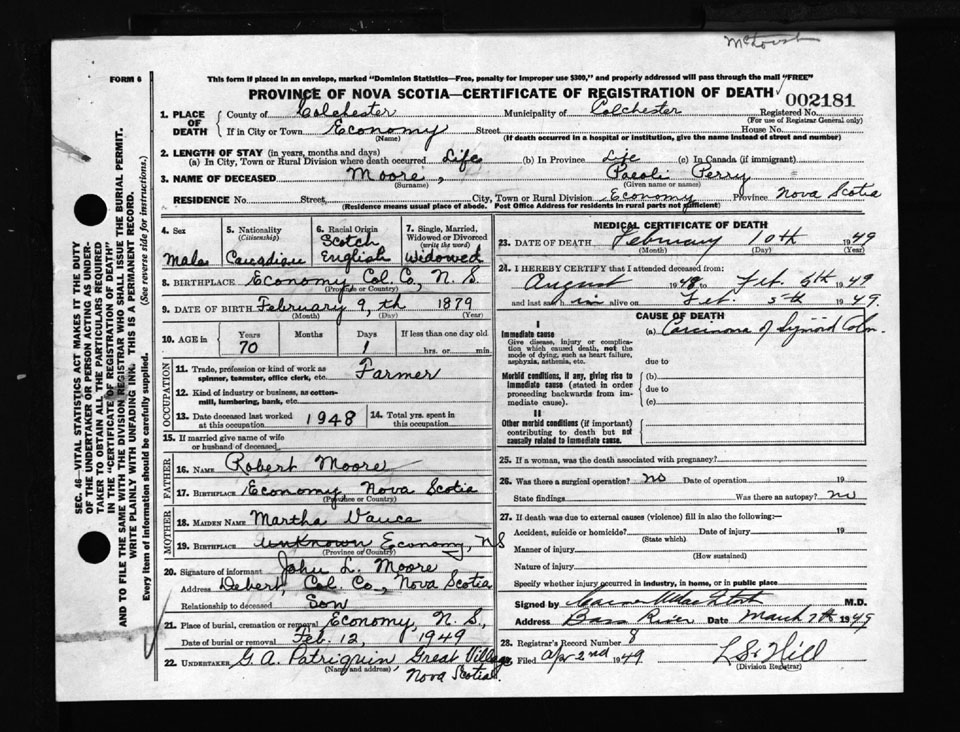 McIntosh
FORM 6
This form if placed in an envelope, marked "Dominion Statistics—Free, penalty for improper use $300," and properly addressed will pass through the mail "FREE"
PROVINCE OF NOVA SCOTIA—CERTIFICATE OF REGISTRATION OF DEATH
002181
1. PLACE OF DEATH
County of Colchester Municipality of Colchester Registered No.
(For use of Registrar General only)
If in City or Town Economy Street House No.
(Name) (If death occurred in a hospital or institution, give the name instead of street and number)
2. LENGTH OF STAY (in years, months and days)
(a) In City, Town or Rural Division where death occurred Life (b) In Province Life (c) In Canada (if immigrant)
3. NAME OF DECEASED Moore, Paeoli Perry
(Surname) (Given name or names)
RESIDENCE No. Street, City, Town or Rural Division Economy Province Nova Scotia
(Residence means usual place of abode. Post Office Address for residents in rural parts not sufficient)
4. Sex Male
5. Nationality (Citizenship) Canadian
6. Racial Origin Scotch English
7. Single, Married, Widowed or Divorced (write the word) Widowed
8. BIRTHPLACE Economy Col. Co., N. S.
(Province or Country)
9. DATE OF BIRTH February 9, th 1879
(Month) (Day) (Year)
10. AGE in Years 70 Months Days 1 If less than one day old hrs. or min.
OCCUPATION
11. Trade, profession or kind of work as spinner, teamster, office clerk, etc. Farmer
12. Kind of industry or business, as cotton-mill, lumbering, bank, etc.
13. Date deceased last worked at this occupation 1948
14. Total yrs. spent in this occupation.
15. If married give name of wife or husband of deceased
FATHER
16. NAME Robert Moore
17. BIRTHPLACE Economy Nova Scotia
(Province or Country)
MOTHER
18. MAIDEN NAME Martha
19. BIRTHPLACE unknown Economy, N S
(Province or Country)
20. Signature of informant John L. Moore
Address Debert, Col. Co., Nova Scotia
Relationship to deceased Son
21. Place of burial, cremation or removal Economy, N. S.,
Date of burial or removal Feb. 12, 1949
22. UNDERTAKER G. A. Patriquin, Great Village
(Name and address) Nova Scotia
MEDICAL CERTIFICATE OF DEATH
23. DATE OF DEATH February 10th 1949
(Month) (Day) (Year)
24. I HEREBY CERTIFY that I attended deceased from:
August 1948 to Feb. 6th 1949
and last saw him alive on Feb. 5th 1949.
CAUSE OF DEATH
I
Immediate cause (a) Carcinoma of Sigmoid Colon.
Give disease, injury or complication which caused death, not the mode of dying, such as heart failure, asphyxia, asthenia, etc.
due to
Morbid conditions, if any, giving rise to immediate cause (stated in order proceeding backwards from immediate cause).
(b)
due to
(c)
II
Other morbid conditions (if important) contributing to death but not causally related to immediate cause.
25. If a woman, was the death associated with pregnancy?
26. Was there a surgical operation? no Date of operation 19
State findings Was there an autopsy? no
27. If death was due to external causes (violence) fill in also the following:—
Accident, suicide or homicide? Date of injury 19
(State which)
Manner of injury
(How sustained)
Nature of injury
Specify whether injury occurred in industry, in home, or in public place
Signed by M.D.
Address Bass River Date March 7th 1949
28. Registrar's Record Number 8
Filed Apr 2nd 1949 Hill
(Division Registrar)
SEC. 46—VITAL STATISTICS ACT MAKES IT THE DUTY
OF THE UNDERTAKER OR PERSON ACTING AS UNDER-
TAKER TO OBTAIN ALL THE PARTICULARS REQUIRED
IN THE "CERTIFICATE OF REGISTRATION OF DEATH"
AND TO FILE THE SAME WITH THE DIVISION REGISTRAR WHO SHALL ISSUE THE BURIAL PERMIT.
WRITE PLAINLY WITH UNFADING INK. THIS IS A PERMANENT RECORD.
Every item of information should be carefully supplied. (See reverse side for instructions.)